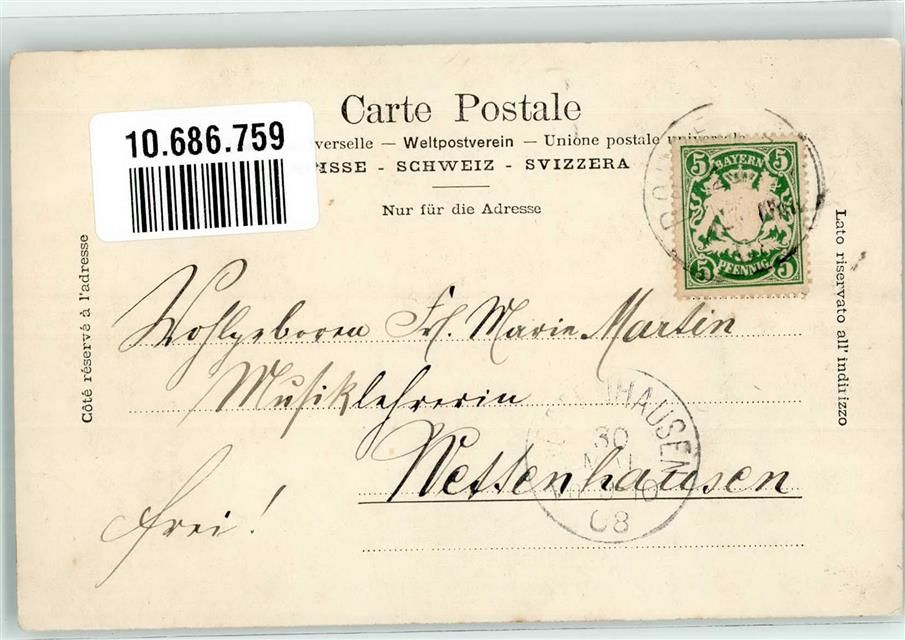 Carte Postale
10.686.759
verselle — Weltpostverein — Unione postale universale
ISSE - SCHWEIZ - SVIZZERA
Nur für die Adresse
5 BAYERN 5
5 PFENNIG 5
Côté réservé à l'adresse
Lato riservato all' indirizzo
Wohlgeboren Frl. Marie Martin
Musiklehrerin
Wettenhausen
frei!
NHAUSEN
30
MAI
08